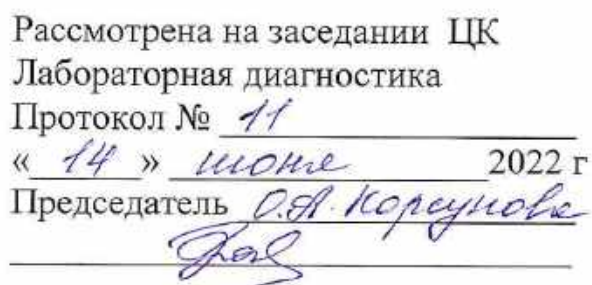 Рассмотрена на заседании ЦК
Лабораторная диагностика
Протокол № 11
« 14 » июня 2022 г
Председатель О.А. Корсунова